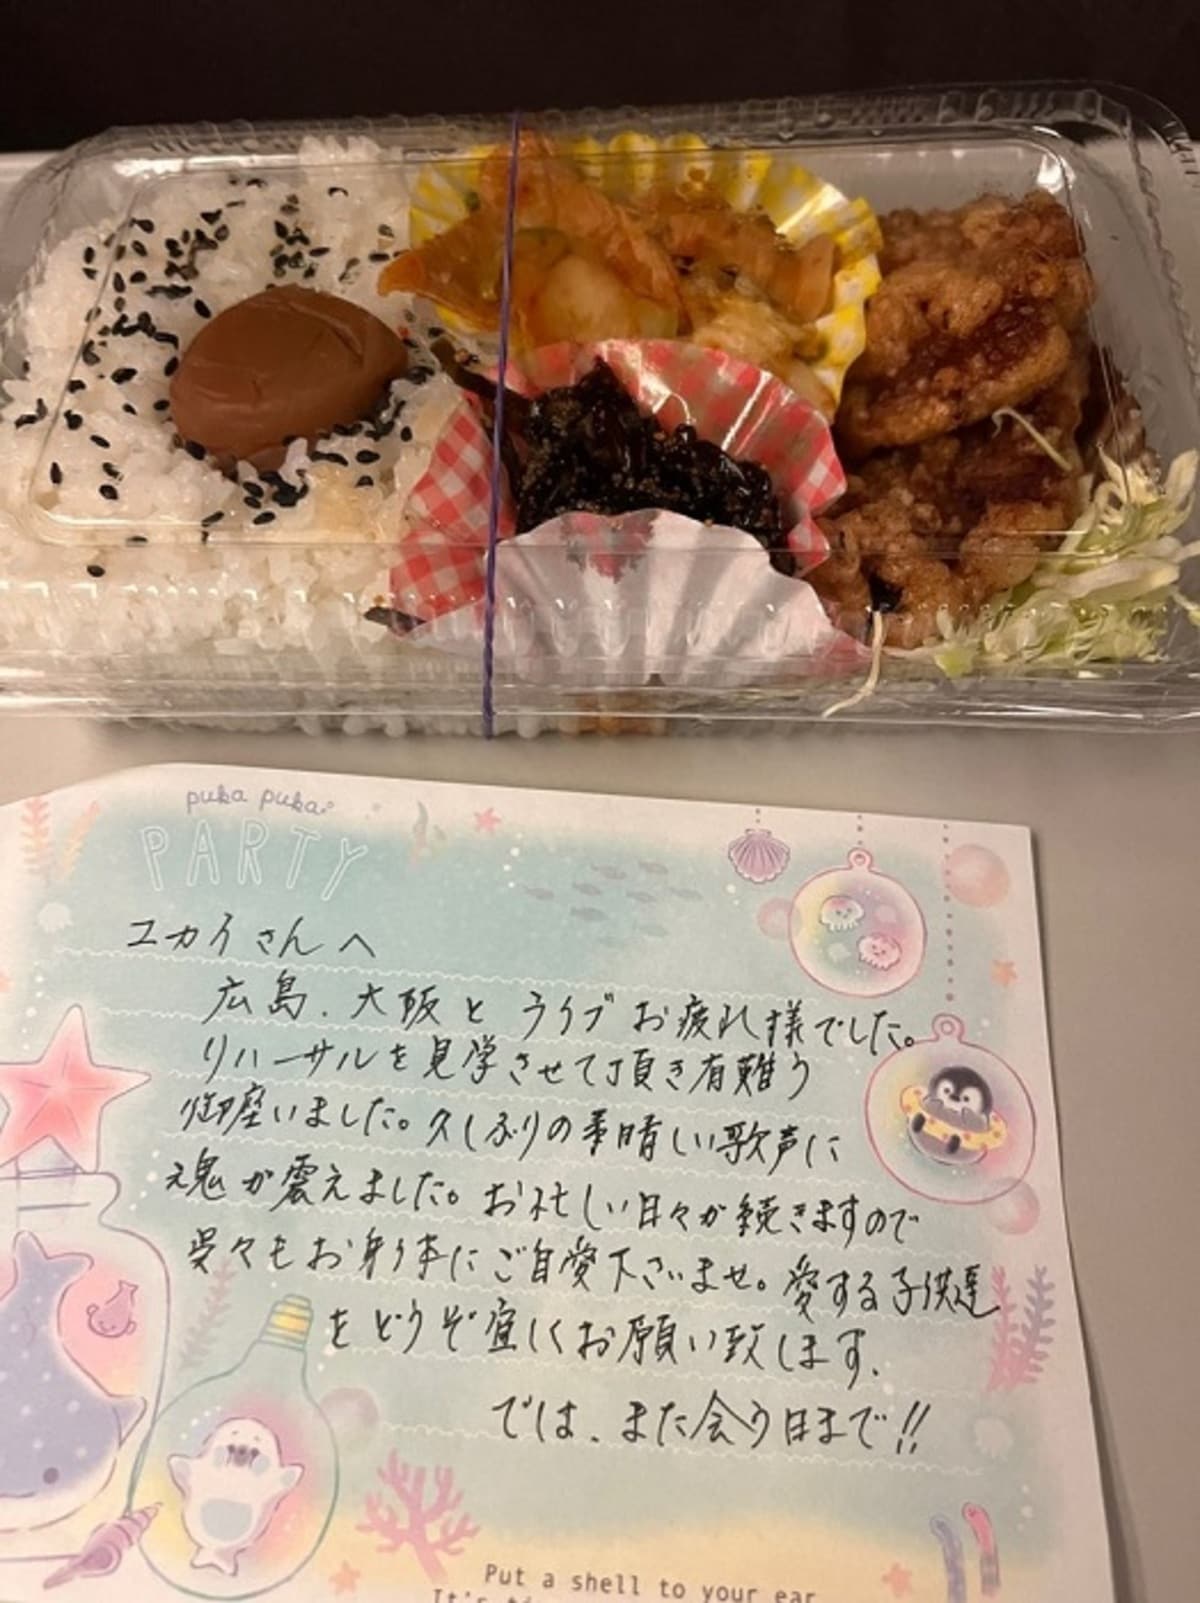 puka puka
PARTY
ユカイさんへ
広島、大阪とライブお疲れ様でした。
リハーサルを見学させて頂き有難う
御座いました。久しぶりの素晴しい歌声に
魂が震えました。お忙しい日々が続きますので
呉々もお身体にご自愛下さいませ。愛する子供達
をどうぞ宜しくお願い致します。
では、また会う日まで!!
Put a shell to your ear
It's